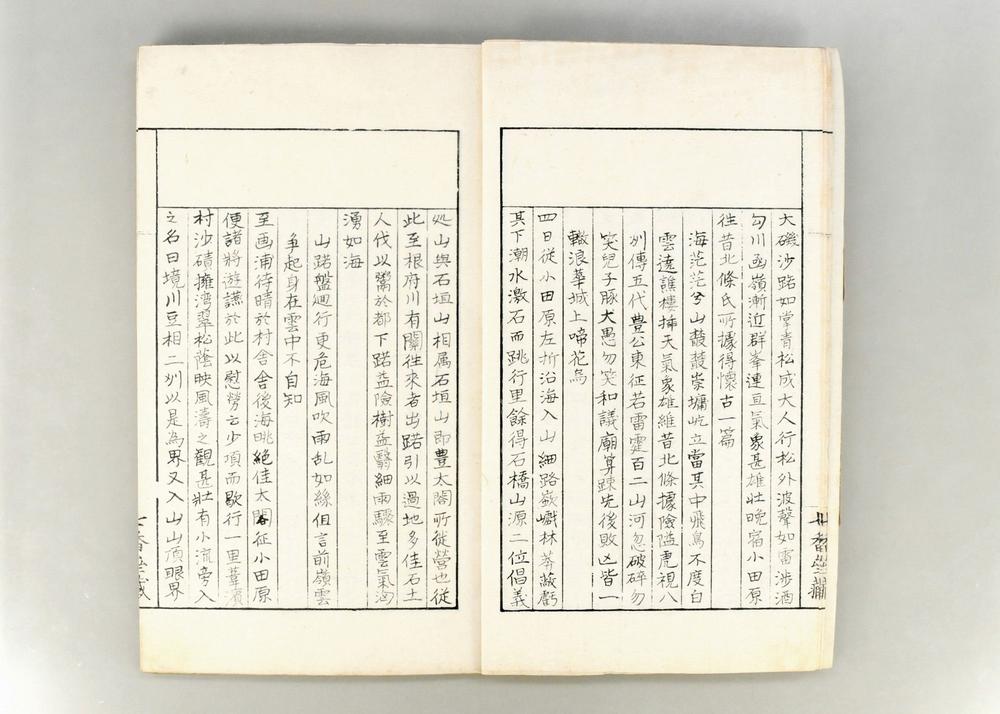 大磯沙路如掌青松成大人行松外波聲如雷涉酒
匂川函嶺漸近群峯連亘氣象甚雄壯晚宿小田原
往昔北條氏所據得懷古一篇
海茫茫兮山鬖鬖崇墉屹立當其中飛鳥不度白
雲遶譙樓插天氣象雄維昔北條據險隘虎視八
州傳五代豊公東征若雷霆百二山河忽破碎勿
笑兒子豚犬愚勿笑和議廟算疎先後敗凶皆一
轍浪華城上啼花烏
四日從小田原左折沿海入山細路嶔巇林莽蔽虧
其下潮水激石而跳行里餘得石橋山源二位倡義
処山與石垣山相属石垣山即豊太閤所徙營也從
此至根府川有關往來者出踣引以過地多佳石土
人伐以鬻於都下踣益險樹益翳細雨驟至雲氣洶
湧如海
山踣盤廻行更危海風吹雨乱如絲但言前嶺雲
争起身在雲中不自知
至画浦待晴於村舍舍後海眺絶佳太閤征小田原
便諸將遊讌於此以慰勞云少項而歇行一里葦濱
村沙磧擁湾翠松蔭映風濤之觀甚壯有小流旁入
之名曰境川豆相二州以是為界又入山山頂眼界